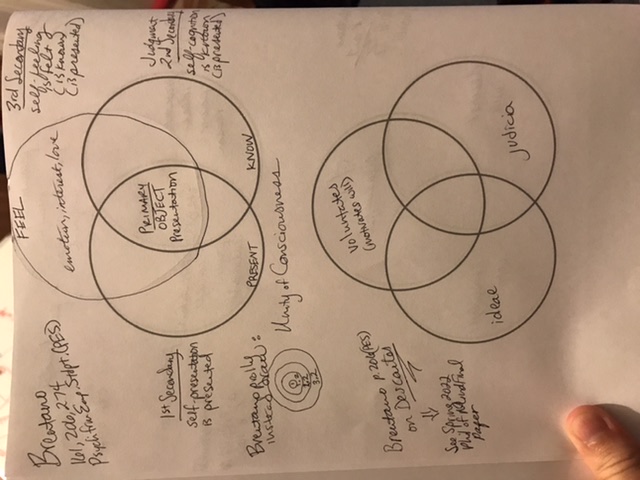 Brentano
161, 206, 274
Psych from Emp. Stdpt. (PES)
3rd Secondary
self-feeling
is felt
(is known)
(is presented)
FEEL
emotion, interest, love
Judgment
2nd Secondary
self-cognition
is known
(is presented)
KNOW
PRIMARY
OBJECT
Presentation
PRESENT
1st Secondary
self-presentation
is presented
Brentano
instead
Unity of Consciousness
1°
2°
3-2
Brentano p. 206 (PES)
on Descartes
See Spring 2022
Paper
voluntates
(motivates will)
judicia
ideae